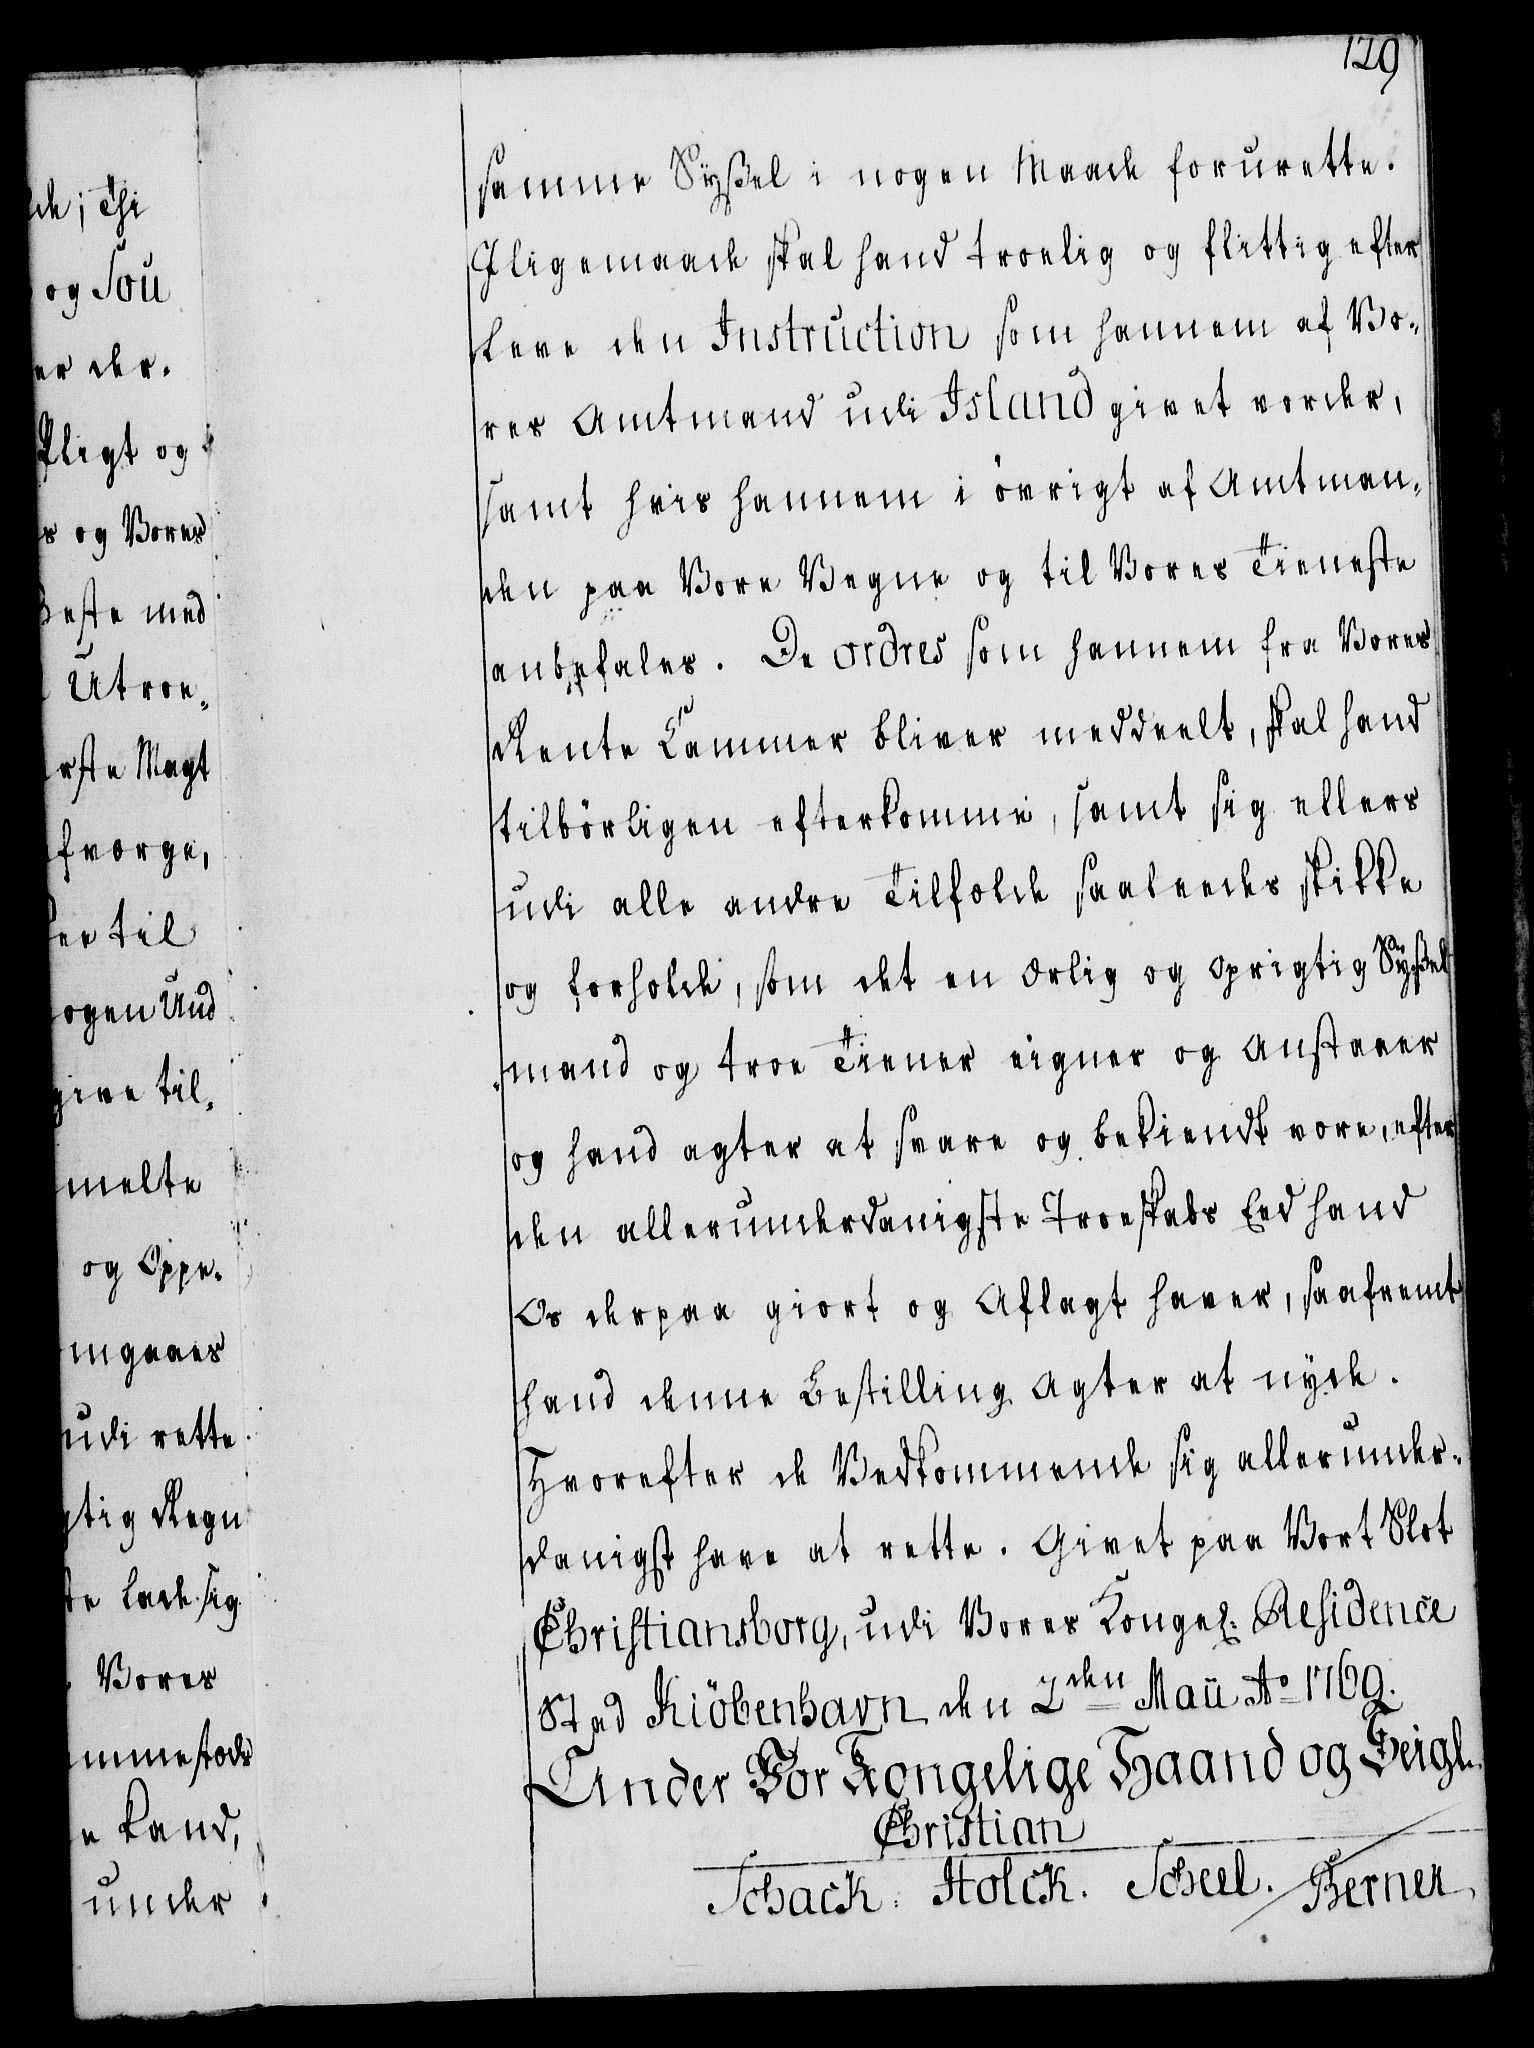 129
samme Sÿßel i nogen Maade forurette.
Iligemaade skal hand troelig og flittig efter
leve den Instruction som hannem af Vo-
res Amtmand udi Island givet vorder,
samt hvis hannem i övrigt af Amtman-
den paa Vore Vegne og til Vores Tieneste
anbefales. De ordres som hannem fra Vores
Rente Cammer bliver meddeelt, skal hand
tilbörligen efterkomme, samt sig ellers
udi alle andre Tilfælde saaledes skikke
og forholde, som det en ærlig og oprigtig Sÿßel
-mand og troe Tiener eigner og anstaaer
og hand agter at svare og bekiendt være, efter
den allerunderdanigste Troeskabs Eed hand
Os derpaa giort og aflagt haver, saafremt
hand denne Bestilling agter at nyde.
Hvorefter de Vedkommende sig allerunder-
danigst have at rette. Givet paa Vort Slot
Christiansborg, udi Vores Kongel: Residence
Stad Kiöbenhavn den 2den Maii Ao 1769.
Under Vor Kongelige Haand og Seigl.
Christian
Schack. Holck. Scheel. / Berner
de; Thi
og Sou
er der-
Pligt og
s og Vores
Beste med
Utroe-
rste Magt
fværge,
til
ogen Und
give til-
melte
og Oppe-
mgaaes
udi rette
gtig Regn
te lade sig
Vores
mmestæds
e kand,
under